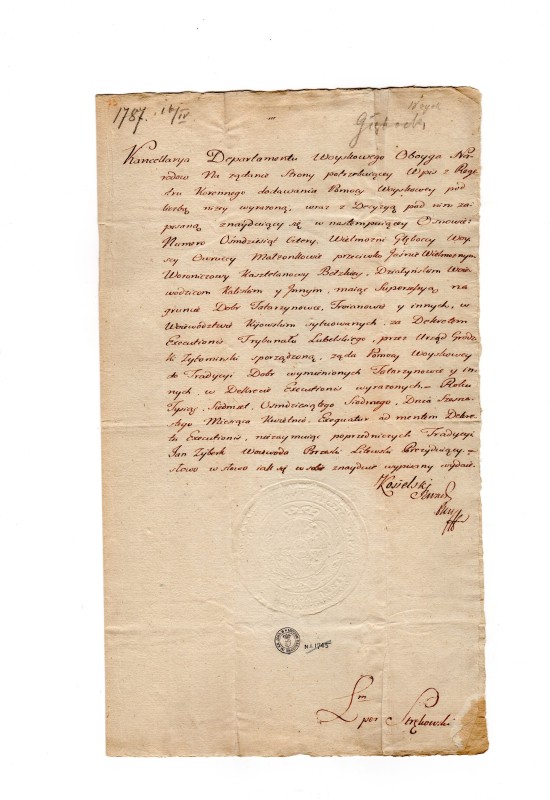 1787. 16/IV
Głębock
Kancellarya Departamentu Woyskowego Oboyga Na-
rodow Na żądanie Strony potrzebuiącey Wpis z Rege-
stru Koronnego dodawania Pomocy Woyskowey pod
liczbą niżey wyrażoną, wraz z Decyzyą pod nim za-
pisaną znayduiący się w następuiącey Osnowie:
Numero Ośmdziesiąt Cztery, Wielmożni Głęboccy Woy-
scy Owruccy Małżonkowie przeciwko Jaśnie Wielmożnym
Woroniczowey Kasztelanowy Bełzkiey, Działyńskim Woie-
wodzicom Kaliskim y Innym, maiąc Superatę na
gruncie Dobr Tatarzynowce, Troianowie y innych, w
Woiewództwie Kijowskim sytuowanych, za Dekretem
Executionis Trybunału Lubelskiego, przez Urząd Grodz-
ki Żytomirski sporządzoną, żąda Pomocy Woyskowey
do Tradycyi Dobr wymienionych Tatarzynowic y in-
nych, w Dekrecie Executionis wyrażonych. Roku
Tysiąc, Siedmset, Ośmdziesiątego Siódmego, Dnia Szesna-
stego Miesiąca Kwietnia. Exequatur ad mentem Dekre-
tu Executionis, nieżaymuiąc poprzedniczych Tradycyi
Jan Zyberk Woiewoda Brzeski Litewski Prezyduiący.
słowo w słowo iak się w sobie znayduie wypisany wydaie.
Kosielski
N.Z. 1745
Lm
per Strękowski